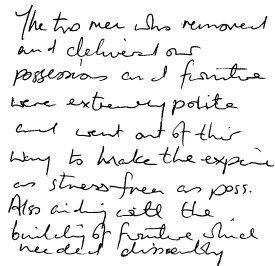 The two men who removed
and delivered our
possessions and furniture
were extremely polite
and went out of their
way to make the experience
as stress-free as poss.
Also aiding with the
building of furniture which
needed dissasembly